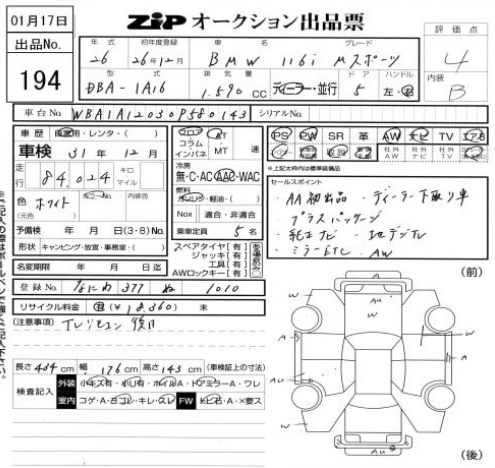 01月17日
ZIP オークション出品票
出品No.
194
評価点
4
内装
B
年式
26
初年度登録
26年12月
車名
BMW
グレード
116i Mスポーツ
型式
DBA-1A16
排気量
1,590 CC
ディーラー・並行
ドア
5
ハンドル
左・右
車台No.
WBA1A12030P580143
シリアルNo.
車歴
自家用・レンタ・( )
車検
31年12月
走行
84,024
キロ
マイル
色
ホワイト
(元色)
カラーNo.
内装色
予備検 年 月 日(3・8)No.
形状
キャンピング・放宣・事務室・( )
名変期限 年 月 日迄
シフト
フロア
コラム
インパネ
AT
MT
速
冷房
無・C・AC・AAC・WAC
燃料
ガソリン・軽油・( )
Nox
適合・非適合
乗車定員
5名
スペアタイヤ【有】
ジャッキ【有】
工具【有】
AWロックキー【有】
PS PW SR 革 AW ナビ TV エアB
社外AW
社外ナビ
社外TV
※上記太枠内は標準装備品
セールスポイント
・AA初出品 ・ディーラー下取り車
プラスパッケージ
・純正ナビ ・地デジTV
・ミラーETC ・AW
登録No.
なにわ 377 ぬ 1010
リサイクル料金
有(¥18,860) 未
(注意事項)
TVリモコン後日
長さ 434cm 幅 176cm 高さ 143cm (車検証上の寸法)
検査記入
外装
小キズ有・小U有・ホイルA・ドアミラーA・ワレ
室内
コゲ・A・ヨゴレ・キレ・スレ
FW
トビ石・A・X要ス
(前)
A
AU
W
W
W
A
A
A
W
W
AU
(後)